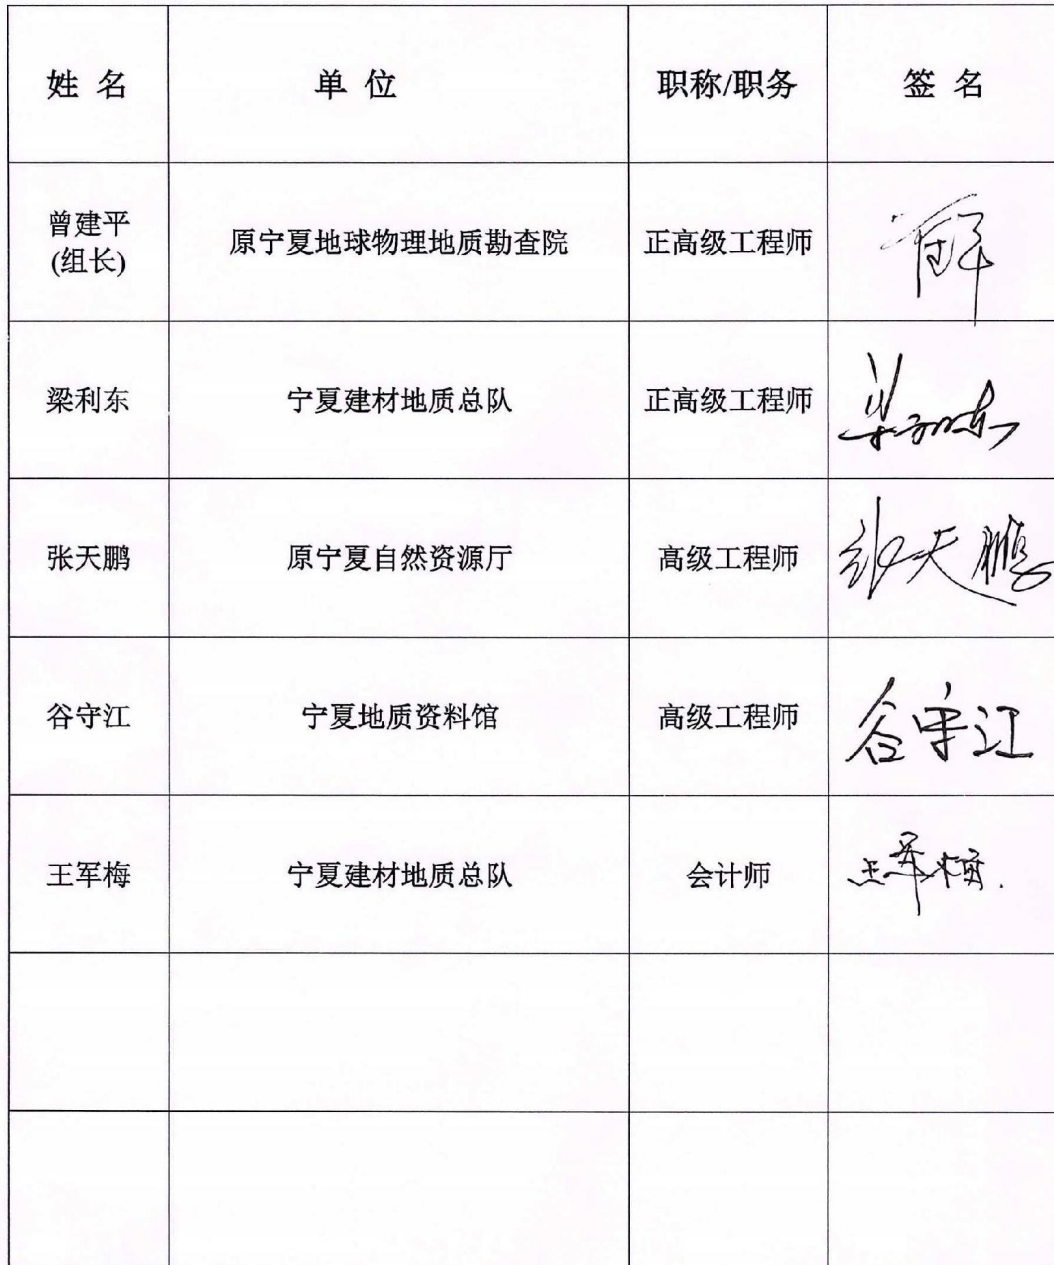 姓 名 单 位 职称/职务 签 名
曾建平
(组长) 原宁夏地球物理地质勘查院 正高级工程师
梁利东 宁夏建材地质总队 正高级工程师 梁利东
张天鹏 原宁夏自然资源厅 高级工程师 张天鹏
谷守江 宁夏地质资料馆 高级工程师 谷守江
王军梅 宁夏建材地质总队 会计师 王军梅